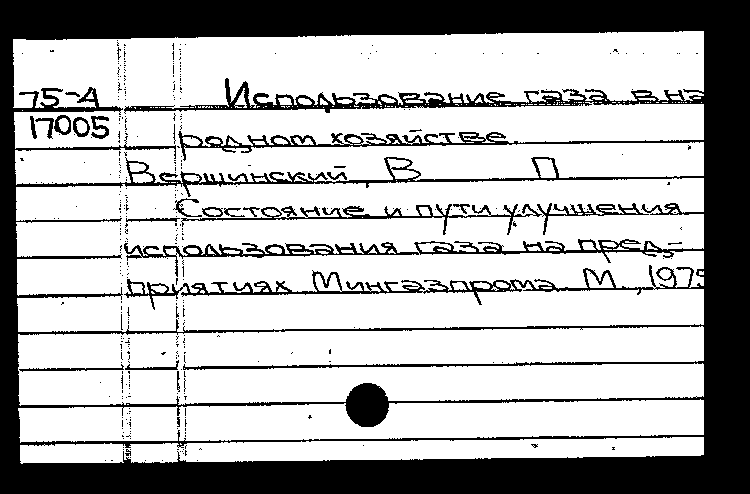 75-4 Использование газа в на
17005 родном хозяйстве.
Вершинский, В П
Состояние и пути улучшения
использования газа на пред-
приятиях Мингазпрома. М., 1975